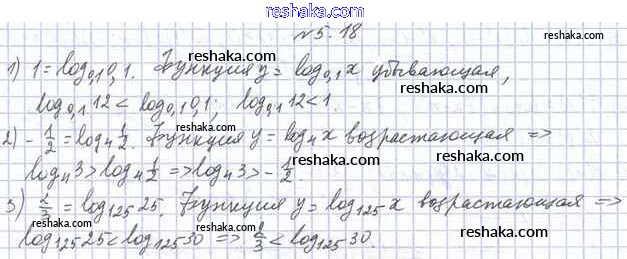 reshaka.com
№5.18
reshaka.com
1) 1 = log₀,₁0,1. Функция y = log₀,₁x убывающая,
reshaka.com
log₀,₁12 < log₀,₁0,1; log₀,₁12 < 1.
2) -1/2 = log₄1/2. Функция y = log₄x возрастающая =>
reshaka.com
log₄3 > log₄1/2 => log₄3 > -1/2.
reshaka.com
3) 2/3 = log₁₂₅25. Функция y = log₁₂₅x возрастающая =>
reshaka.com
log₁₂₅25 < log₁₂₅30 => 2/3 < log₁₂₅30.
reshaka.com